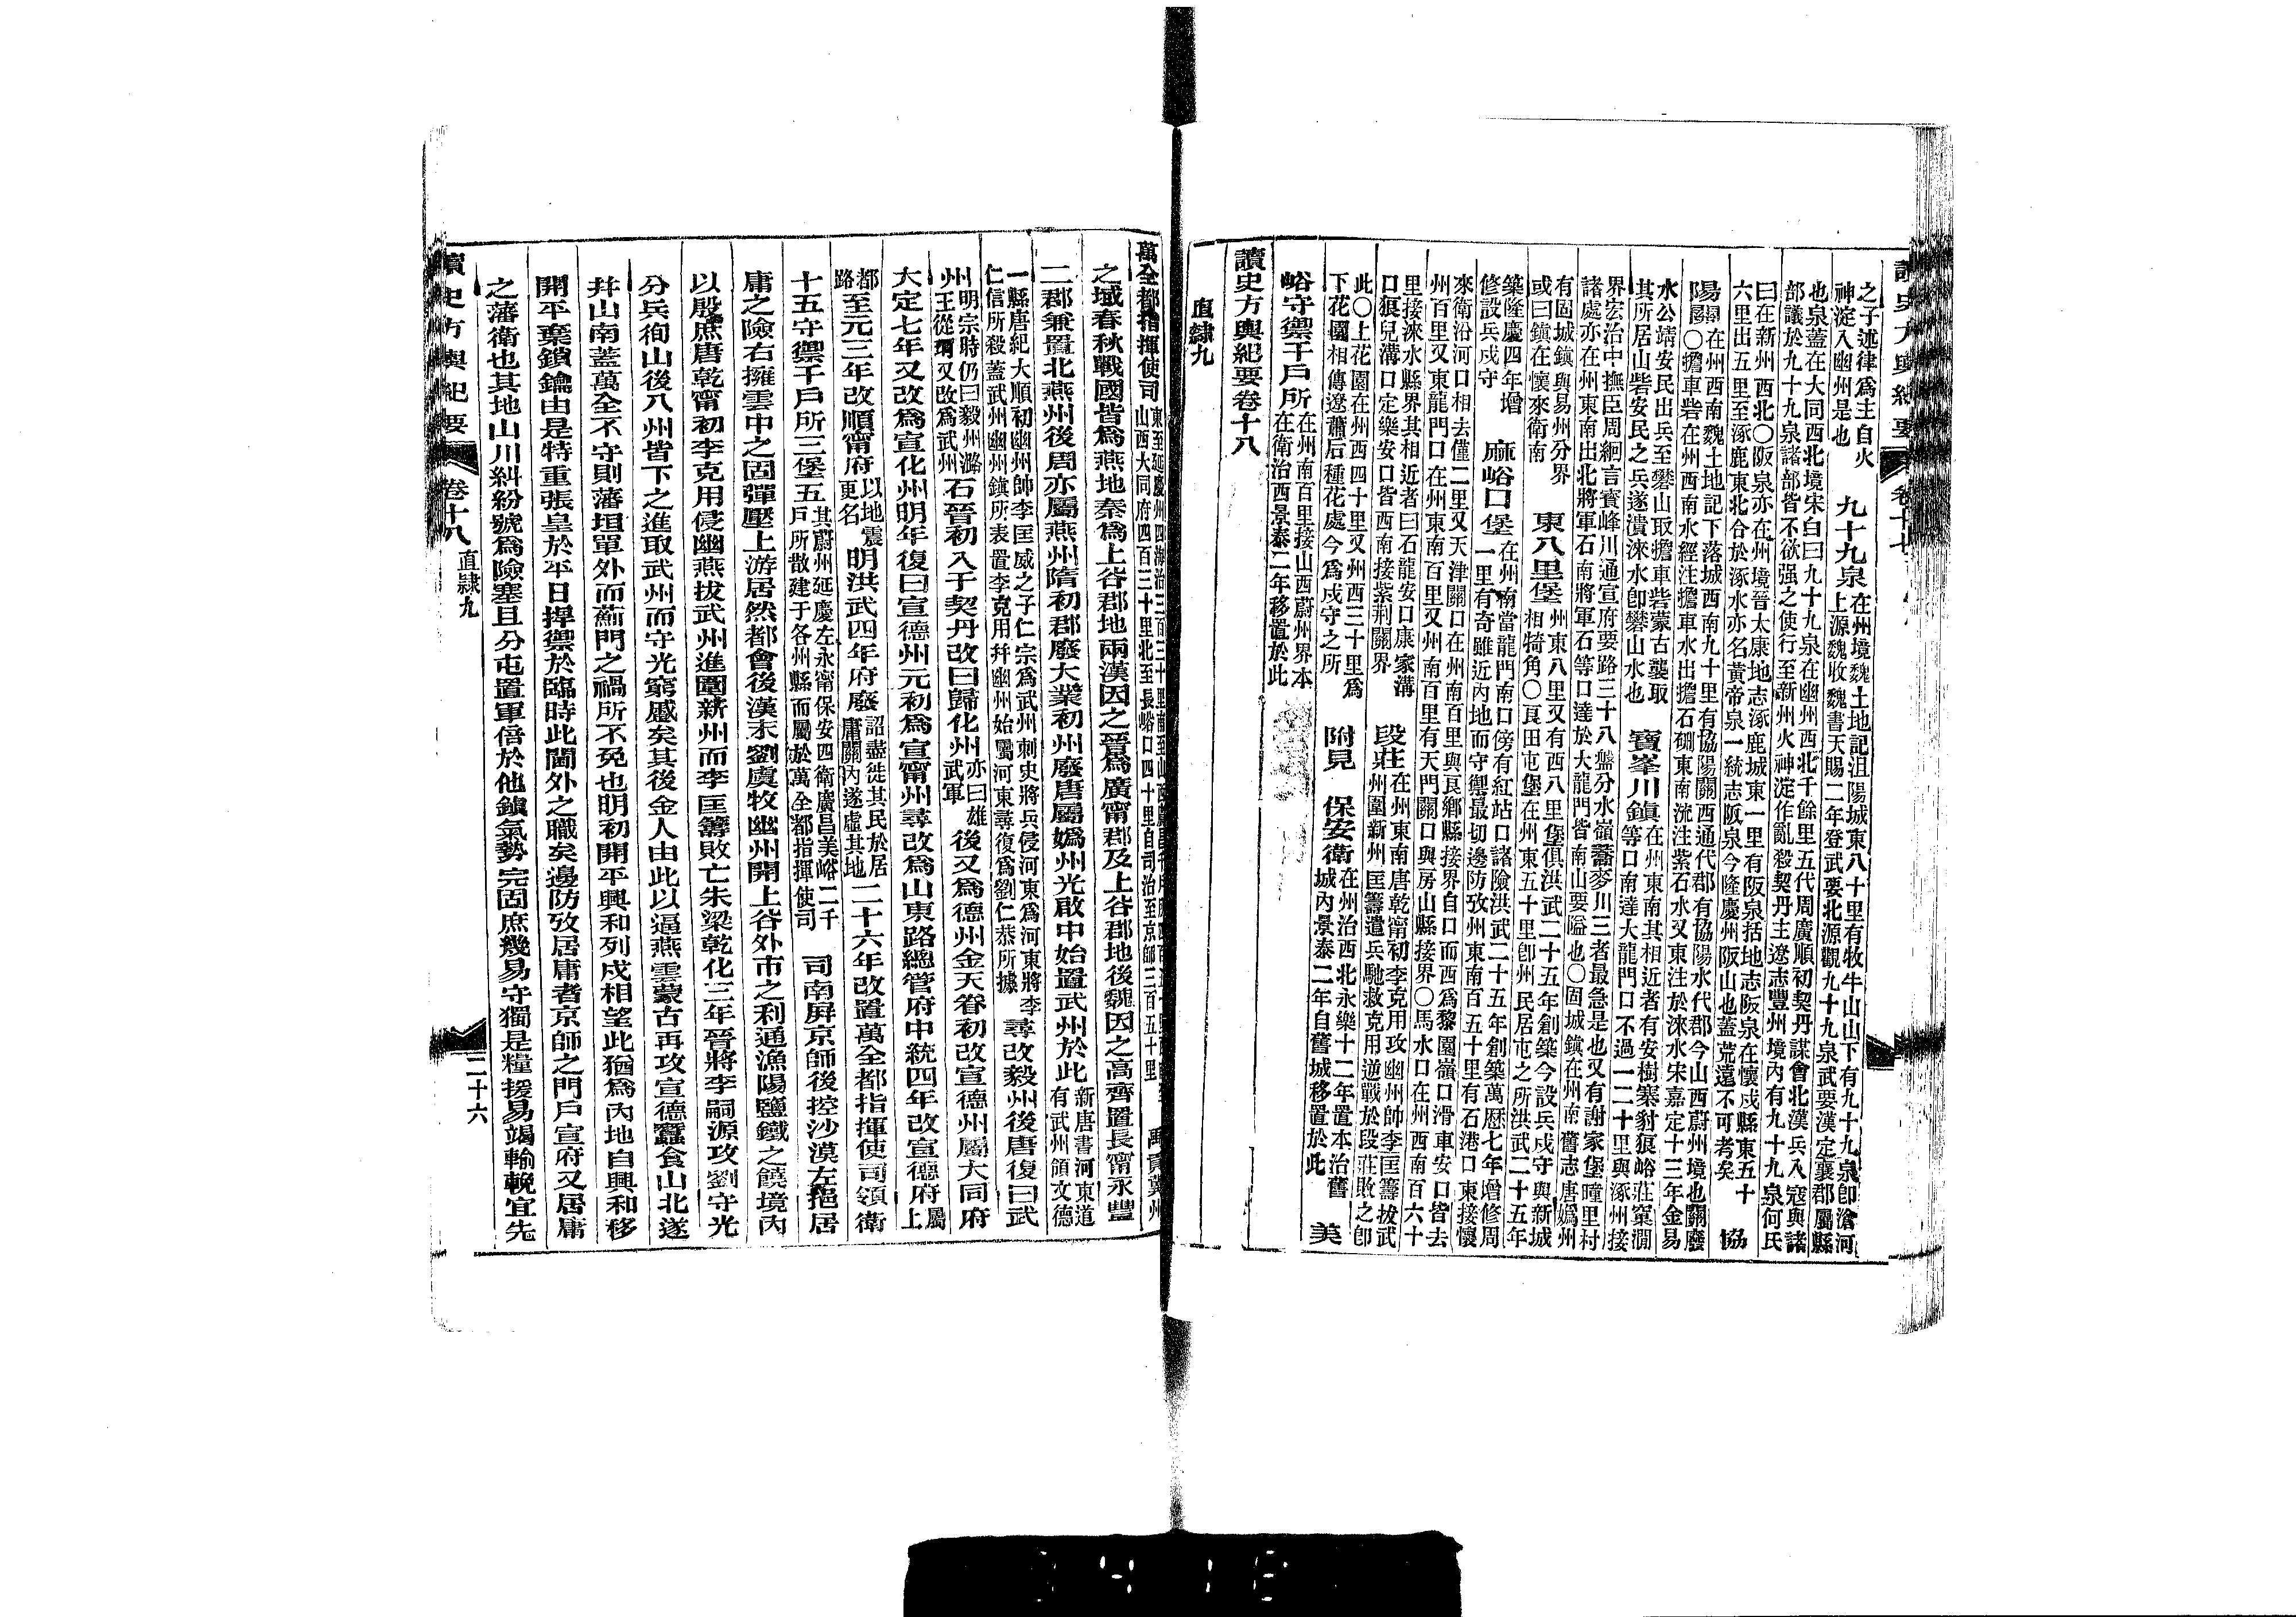 之子述律為主自火
神淀入幽州是也
九十九泉
在州境魏土地記沮陽城東八十里有牧牛山山下有九十九泉卽滄河
上源魏收魏書天賜二年登武要北源觀九十九泉武要漢定襄郡屬縣
也泉蓋在大同西北境宋白曰九十九泉在幽州西北千餘里五代周廣順初契丹謀會北漢兵入寇與諸
部議於九十九泉諸部皆不欲强之使行至新州火神淀作亂殺契丹主遼志豐州境內有九十九泉何氏
曰在新州西北〇阪泉亦在州境晉太康地志涿鹿城東一里有阪泉括地志阪泉在懷戎縣東五十
六里出五里至涿鹿東北合於涿水亦名黃帝泉一統志阪泉今隆慶州阪山也蓋荒遠不可考矣
協
陽關
在州西南魏土地記下落城西南九十里有協陽關西通代郡有協陽水代郡今山西蔚州境也關廢
〇擔車砦在州西南水經注擔車水出擔石硎東南流注紫石水又東注於淶水宋嘉定十三年金易
水公靖安民出兵至礬山取擔車砦蒙古襲取
其所居山砦安民之兵遂潰淶水卽礬山水也
寶峯川鎮
在州東南其相近者有安樹寨豺狼峪莊窠澗
等口南達大龍門口不過一二十里與涿州接
界宏治中撫臣周絅言寶峰川通宣府要路三十八盤分水嶺蕎麥川三者最急是也又有謝家堡曈里村
諸處亦在州東南出北將軍石南將軍石等口達於大龍門皆南山要隘也〇固城鎮在州南舊志唐媯州
有固城鎮與易州分界
或曰鎮在懷來衛南
東八里堡
州東八里又有西八里堡俱洪武二十五年創築今設兵戍守與新城
相犄角〇良田屯堡在州東五十里卽州民居屯之所洪武二十五年
築隆慶四年增
修設兵戍守
麻峪口堡
在州南當龍門南口傍有紅站口諸險洪武二十五年創築萬歷七年增修周
一里有奇雖近內地而守禦最切邊防攷州東南百五十里有石港口東接懷
來衛沿河口相去僅二里又天津關口在州南百里與良鄉縣接界自口而西為黎園嶺口滑車安口皆去
州百里又東龍門口在州東南百里又州南百里有天門關口與房山縣接界〇馬水口在州西南百六十
里接淶水縣界其相近者曰石龍安口康家溝
口狼兒溝口定樂安口皆西南接紫荆關界
段莊
在州東南唐乾甯初李克用攻幽州帥李匡籌拔武
州圍新州匡籌遣兵馳救克用逆戰於段莊敗之卽
此〇上花園在州西四十里又州西三十里為
下花園相傳遼蕭后種花處今為戍守之所
附見
保安衛
在州治西北永樂十二年置本治舊
城內景泰二年自舊城移置於此
美
峪守禦千戶所
在州南百里接山西蔚州界本
在衛治西景泰二年移置於此
讀史方輿紀要卷十八
直隸九
萬全都指揮使司
山西大同府四百三十里北至長峪口四十里自司治至京師三百五十里
禹貢冀州
之域春秋戰國皆為燕地秦為上谷郡地兩漢因之晉為廣甯郡及上谷郡地後魏因之高齊置長甯永豐
二郡兼置北燕州後周亦屬燕州隋初郡廢大業初州廢唐屬媯州光啟中始置武州於此
新唐書河東道
有武州領文德
一縣唐紀大順初幽州帥李匡威之子仁宗為武州刺史將兵侵河東為河東將李
仁信所殺蓋武州幽州鎮所表置李克用幷幽州始屬河東尋復為劉仁恭所據
尋改毅州後唐復曰武
州
明宗時仍曰毅州潞
王從珂又改為武州
石晉初入于契丹改曰歸化州
亦曰雄
武軍
後又為德州金天眷初改宣德州屬大同府
大定七年又改為宣化州明年復曰宣德州元初為宣甯州尋改為山東路總管府中統四年改宣德府
屬
上
都
路
至元三年改順甯府
以地震
更名
明洪武四年府廢
詔盡徙其民於居
庸關內遂虛其地
二十六年改置萬全都指揮使司領衛
十五守禦千戶所三堡五
其蔚州延慶左永甯保安四衛廣昌美峪二千
戶所散建于各州縣而屬於萬全都指揮使司
司南屏京師後控沙漠左挹居
庸之險右擁雲中之固彈壓上游居然都會後漢末劉虞牧幽州開上谷外市之利通漁陽鹽鐵之饒境內
以殷庶唐乾甯初李克用侵幽燕拔武州進圍新州而李匡籌敗亡朱梁乾化三年晉將李嗣源攻劉守光
分兵徇山後八州皆下之進取武州而守光窮蹙矣其後金人由此以逼燕雲蒙古再攻宣德蠶食山北遂
幷山南蓋萬全不守則藩垣單外而薊門之禍所不免也明初開平興和列戍相望此猶為內地自興和移
開平棄鎖鑰由是特重張皇於平日捍禦於臨時此閫外之職矣邊防攷居庸者京師之門戶宣府又居庸
之藩衛也其地山川糾紛號為險塞且分屯置軍倍於他鎮氣勢完固庶幾易守獨是糧援易竭輸輓宜先
讀史方輿紀要
卷十八
直隸九
二十六